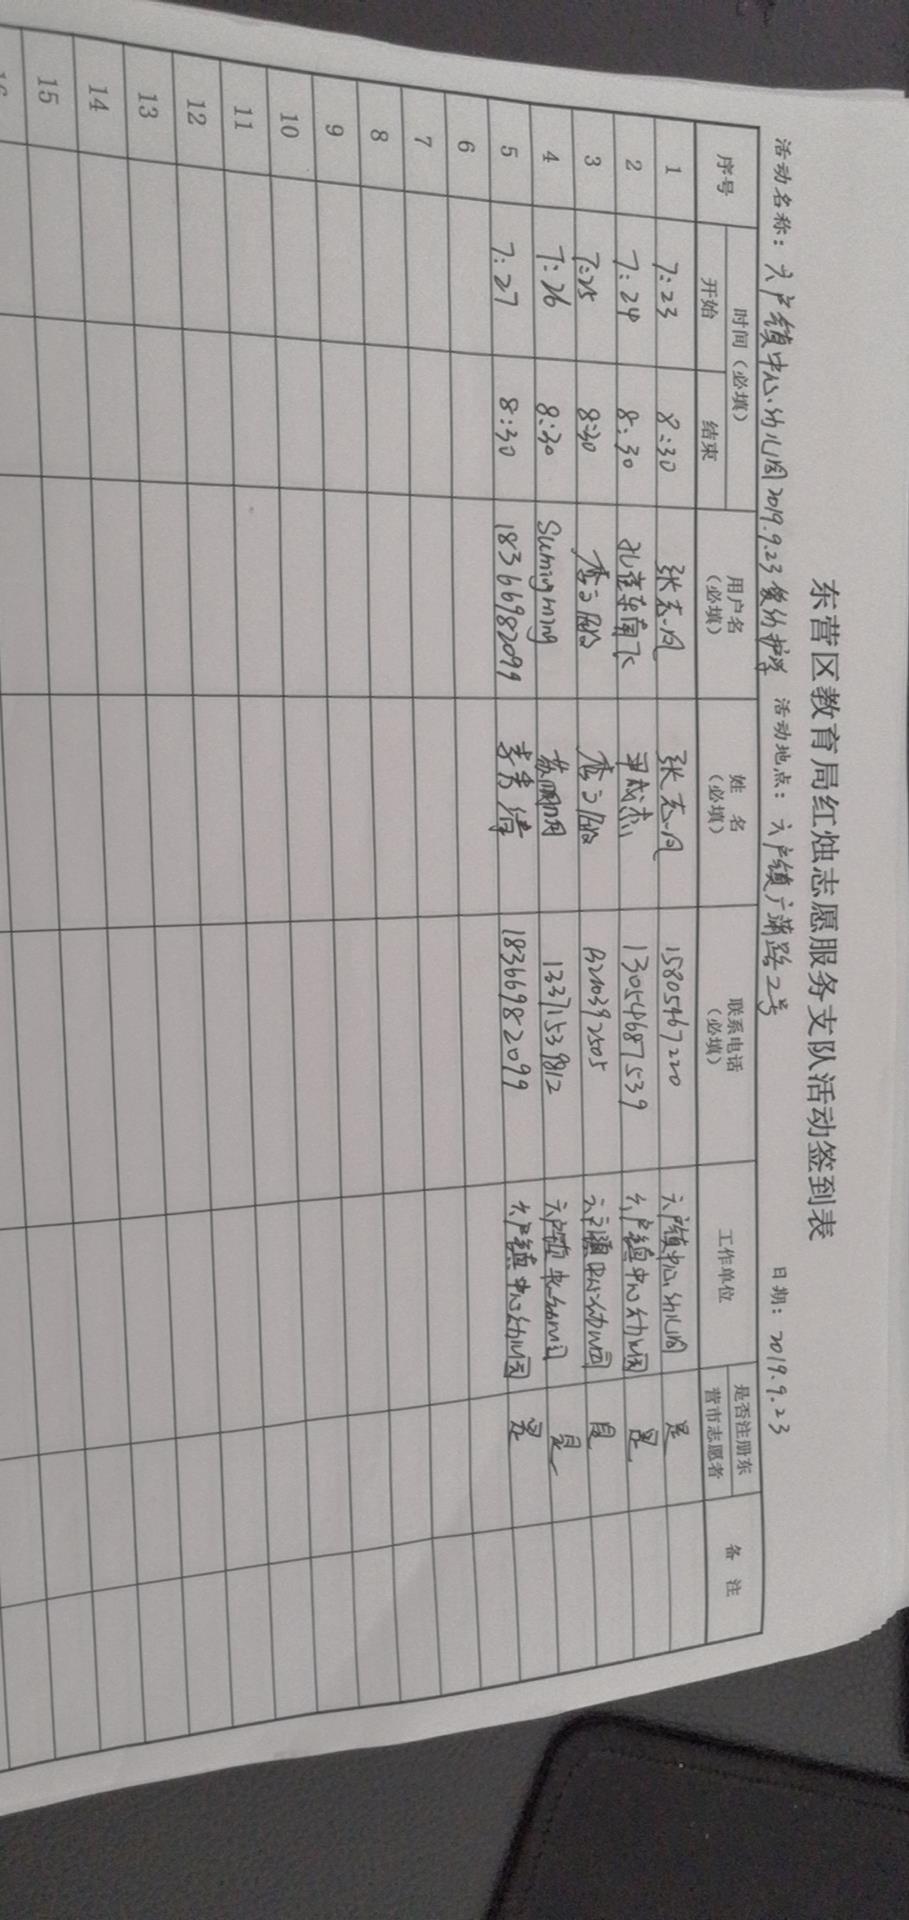 东营区教育局红烛志愿服务支队活动签到表
活动名称：六户镇中心幼儿园2019.9.23 护学 活动地点：六户镇广蒲路2号 日期：2019.9.23
序号 时间（必填） 用户名（必填） 姓名（必填） 联系电话（必填） 工作单位 是否注册东营市志愿者 备注
开始 结束
1 7:23 8:30 张志风 张志风 15805467220 六户镇中心幼儿园 是
2 7:24 8:30 孔雀东南飞 13054687539 六户镇中心幼儿园 是
3 7:25 8:30 六户镇中心幼儿园 是
4 7:26 8:30 Sumingming 苏明明 13371539812 六户镇中心幼儿园 是
5 7:27 8:30 18366982099 李秀 18366982099 六户镇中心幼儿园 是
6
7
8
9
10
11
12
13
14
15